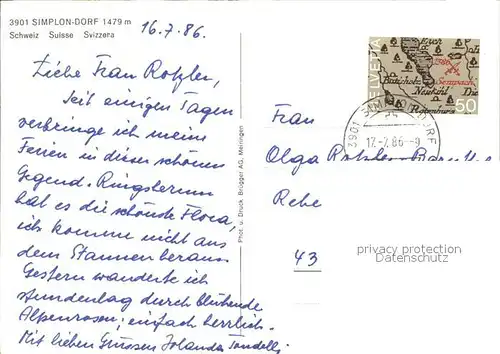 3901 SIMPLON-DORF 1479 m
Schweiz Suisse Svizzera
16.7.86.
Liebe Frau Rotzler,
Seit einigen Tagen
verbringe ich meine
Ferien in dieser schönen
Gegend. Ringsherum
hat es die schönste Flora,
ich komme nicht aus
dem Staunen heraus.
Gestern wanderte ich
stundenlag durch blühende
Alpenrosen, einfach herrlich.
Mit lieben Grüssen Jolanda
Phot. u. Druck Brügger AG, Meiringen
HELVETIA
1386
Sempach
50
3901 SIMPLON DORF
17.-7.86.-9
Frau
Olga Rotzler
Rebe
43
privacy protection
DATENSCHUTZ